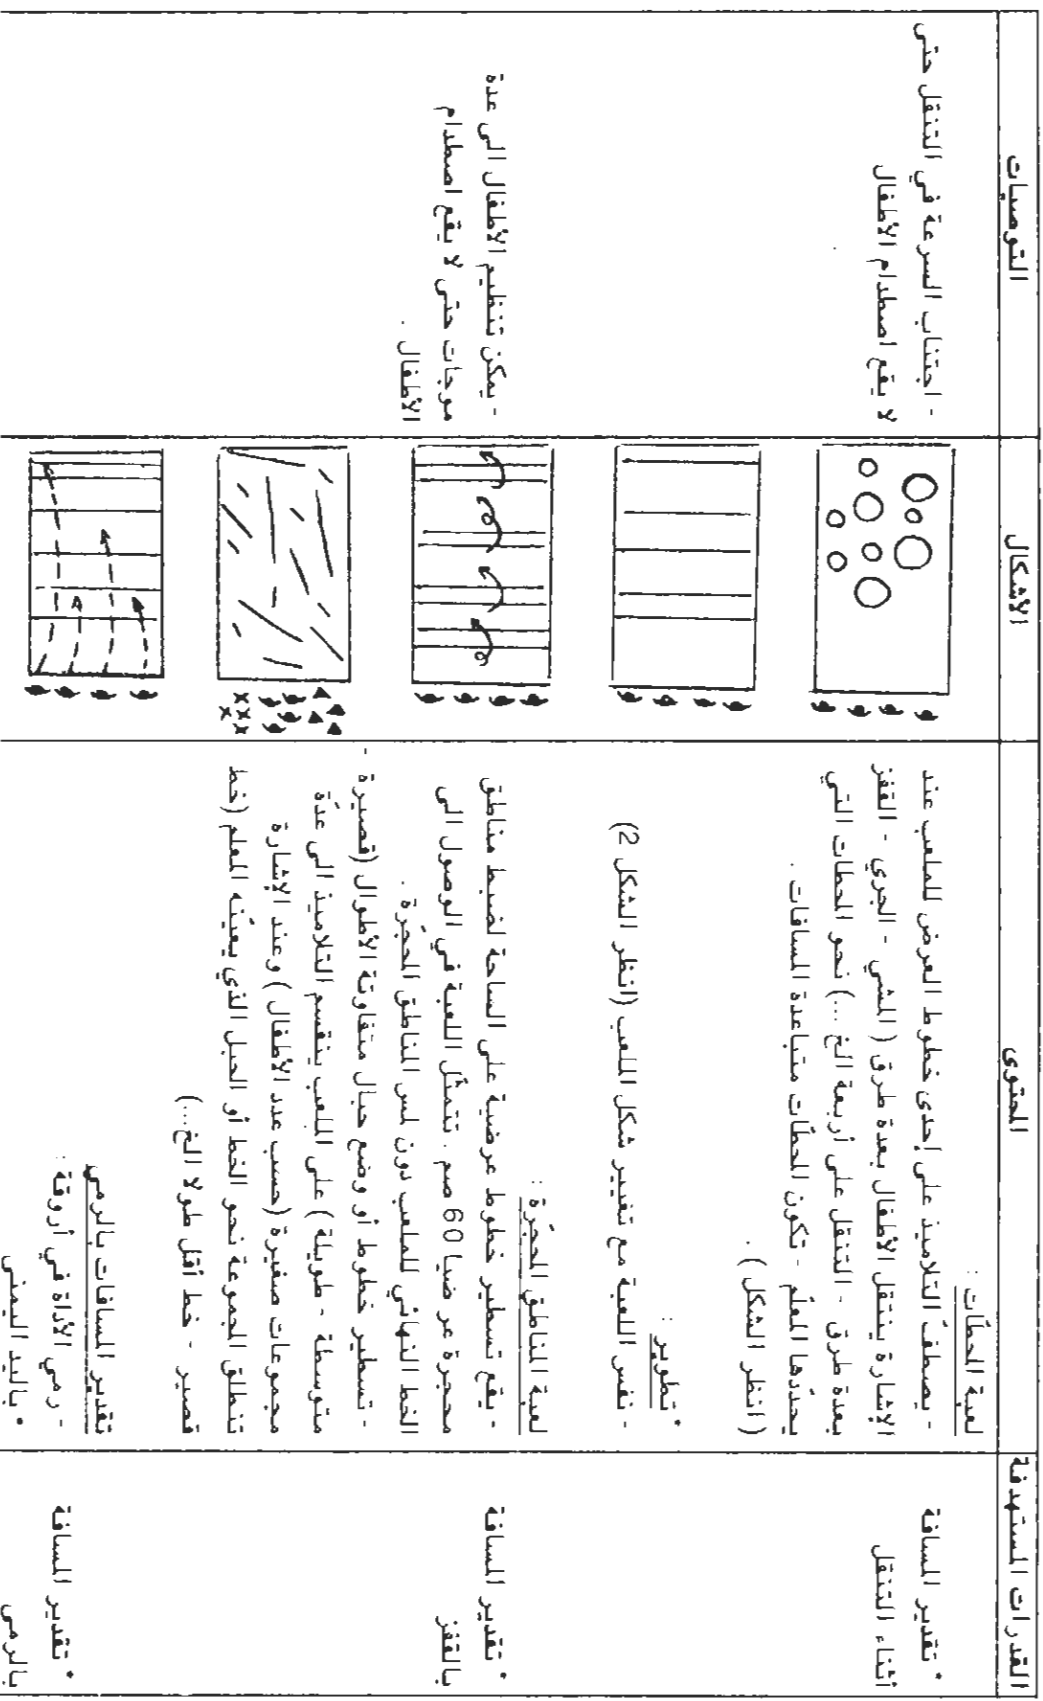 القدرات المستهدفة
المحتوى
الأشكال
التوصيات
* تقدير المسافة
أثناء التنقل
لعبة المحطّات :
- يصطفّ التلاميذ على إحدى خطوط العرض للملعب عند
الإشارة يتنقل الأطفال بعدة طرق ( المشي - الجري - القفز
بعدة طرق - التنقل على أربعة الخ ...) نحو المحطات التي
يحدّدها المعلّم - تكون المحطّات متباعدة المسافات .
( انظر الشكل ) .
- اجتناب السرعة في التنقل حتى
لا يقع اصطدام الأطفال
* تطوير :
- نفس اللعبة مع تغيير شكل الملعب (انظر الشكل 2)
* تقدير المسافة
بالقفز
لعبة المناطق المحجّرة :
- يقع تسطير خطوط عرضية على الساحة لضبط مناطق
محجرة عرضها 60 صم . تتمثّل اللعبة في الوصول الى
الخط النهائي للملعب دون لمس المناطق المحجّرة .
- تسطير خطوط أو وضع حبال متفاوتة الأطوال (قصيرة -
متوسطة - طويلة ) على الملعب ينقسم التلاميذ الى عدّة
مجموعات صغيرة (حسب عدد الأطفال ) وعند الإشارة
تنطلق المجموعة نحو الخط أو الحبل الذي يعيّنه المعلم (خط
قصير - خط أقل طولا الخ...)
- يمكن تنظيم الأطفال الى عدة
موجات حتى لا يقع اصطدام
الأطفال .
* تقدير المسافة
بالرمي
تقدير المسافات بالرمي
- رمي الأداة في أروقة :
• باليد اليمنى